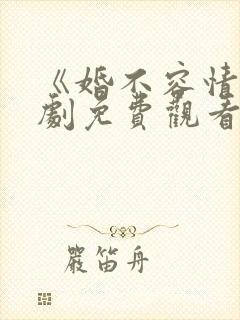 《婚不容情
劇免費觀看
嚴笛舟